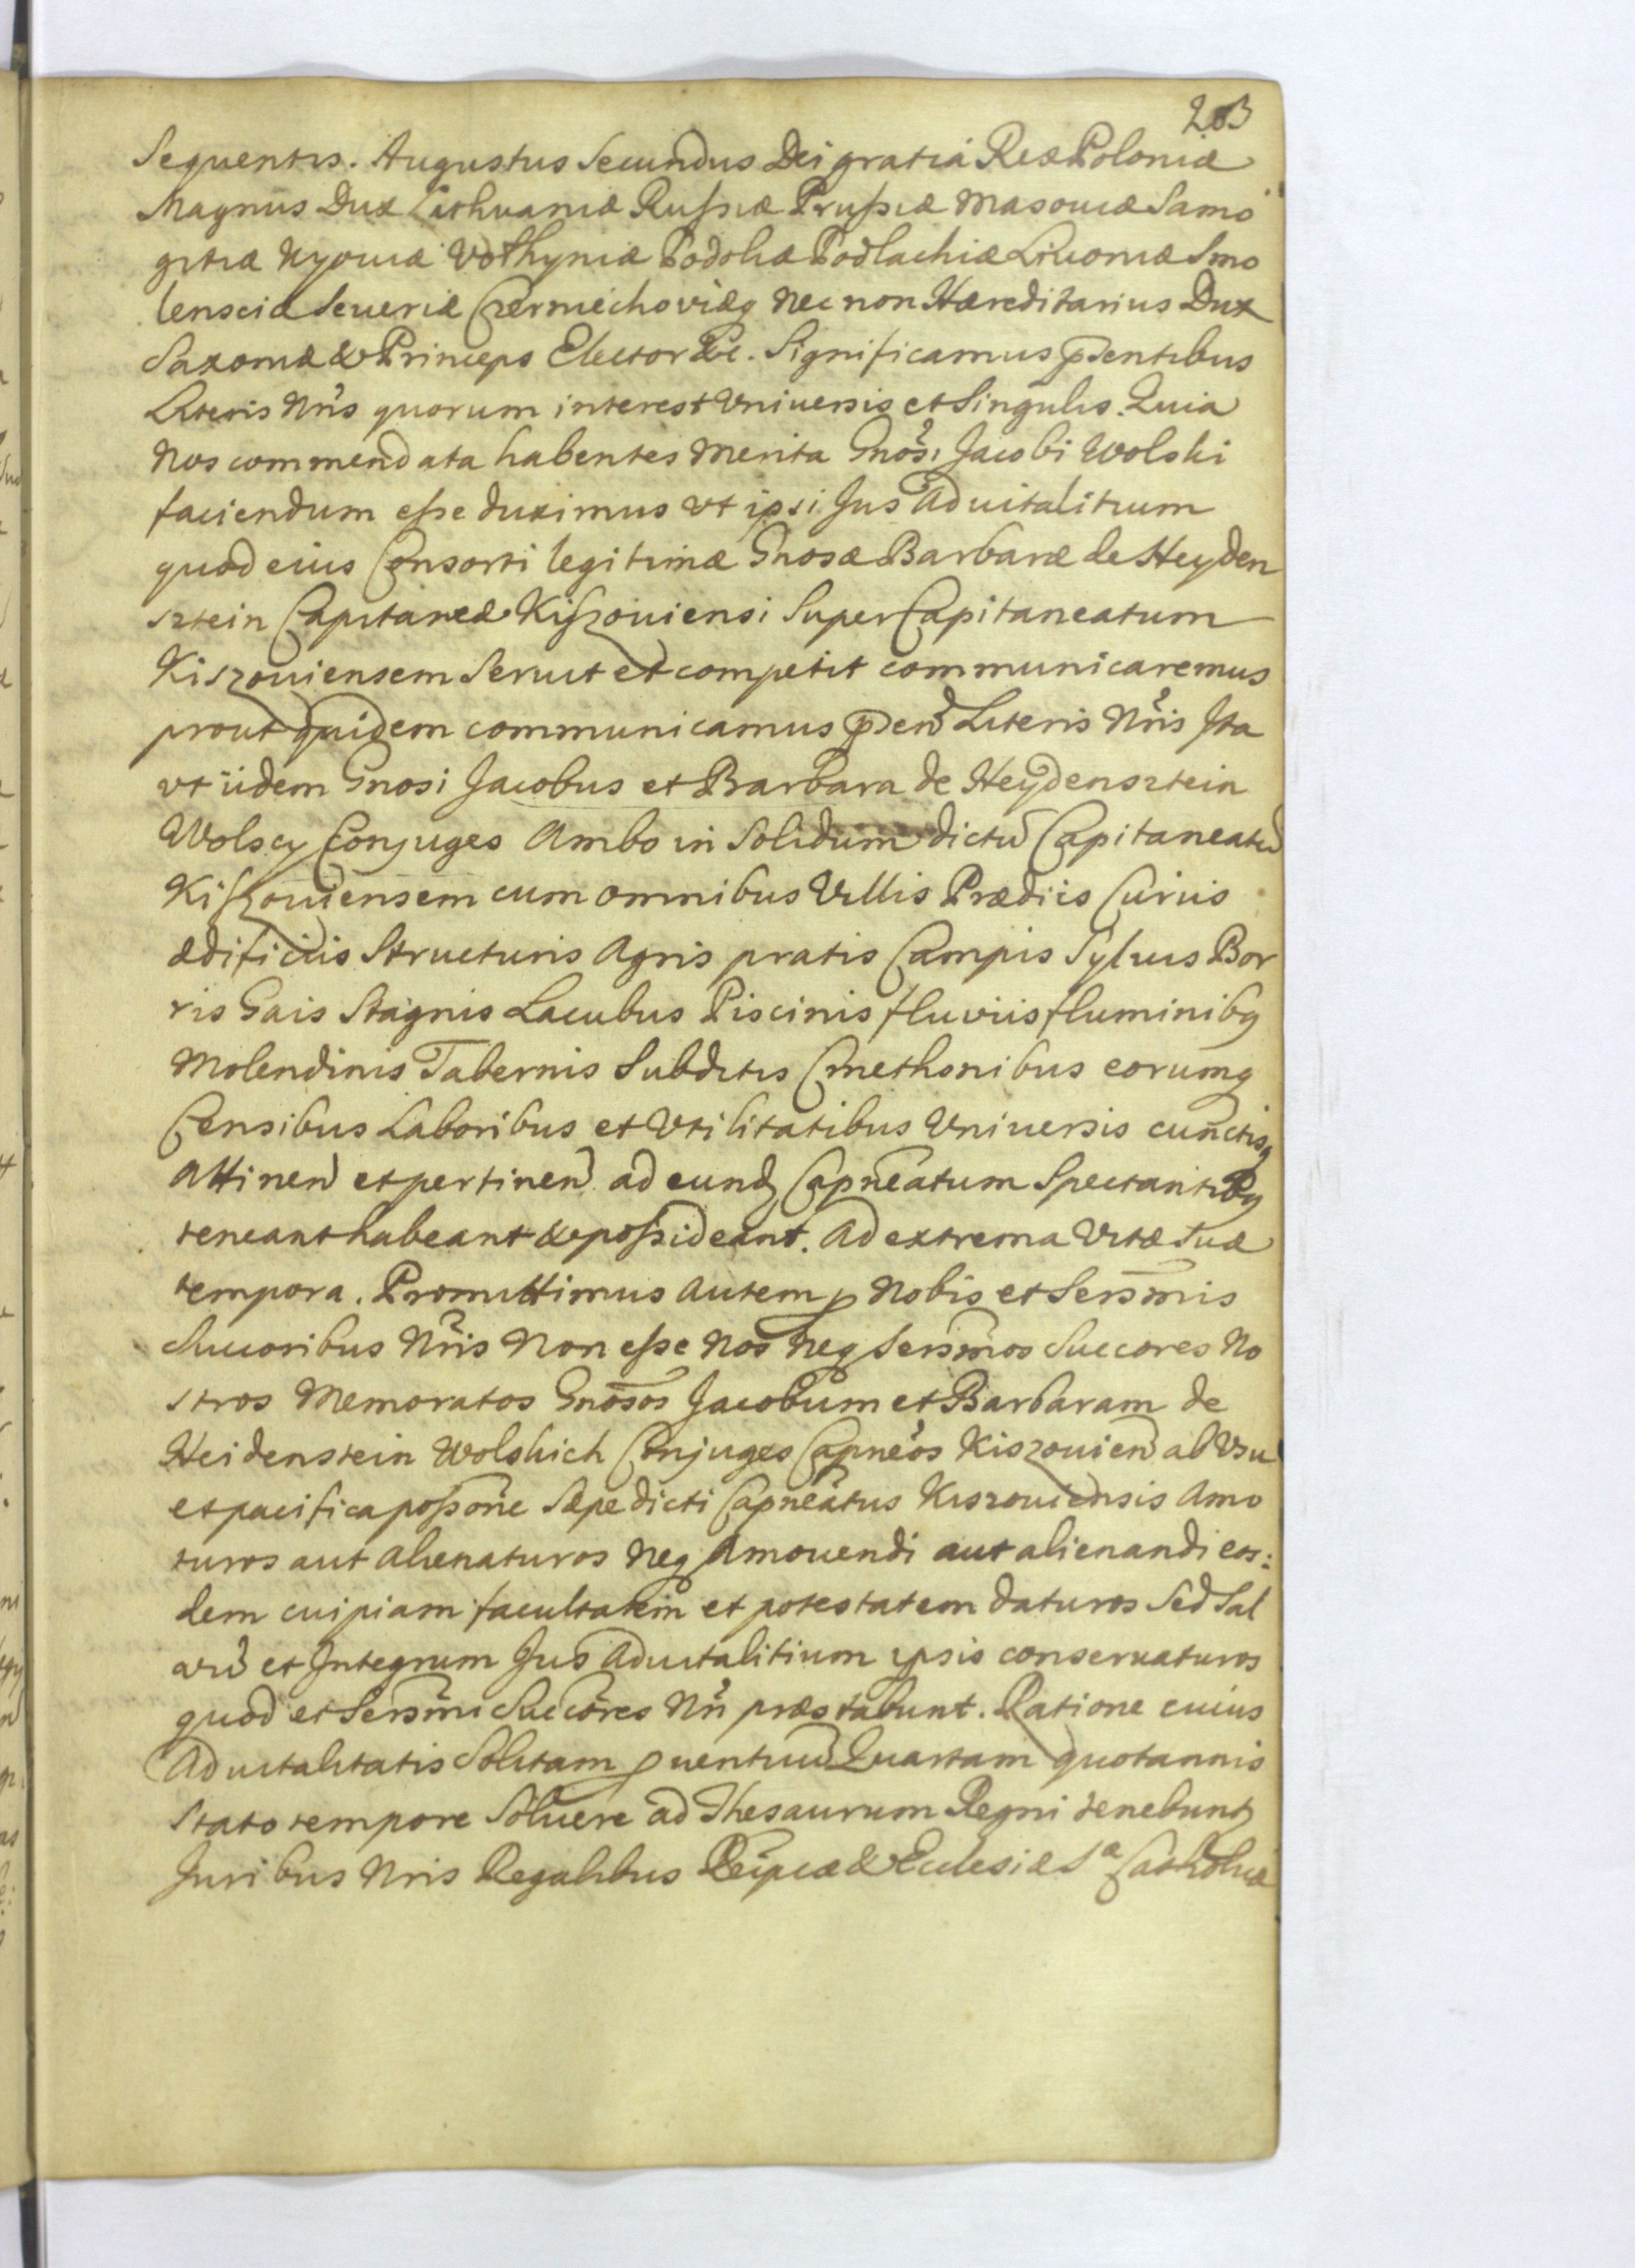 203
Sequentis. Augustus Secundus Dei gratia Rex Poloniæ
Magnus Dux Lithuaniæ Rußiæ Prußiæ Masouiæ Samo
gitiæ Kyouiæ Volhyniæ Podoliæ Podlachiæ Liuoniæ Smo
lensciæ Seueriæ Czerniechoviæq Nec non Hæreditarius Dux
Saxoniæ & Princeps Elector &c. Significamus pñtentibus
Literis Nris quorum interest Vniuersis et Singulis. Quia
Nos commendata habentes Merita Gnosi Jacobi Wolski
faciendum eße duximus vt ipsi Jus Aduitalitium
quod eius Consorti legitimæ Gnosæ Barbaræ de Heyden
sztein Capitaneæ Kiszouiensi Super Capitaneatum
Kiszouiensem Seruit et competit communicaremus
prout quidem communicamus pñsen Literis Nris Ita
vt iidem Gnosi Jacobus et Barbara de Heydensztein
Wolscy Conjuges Ambo in Solidum dictũ Capitaneatũ
Kiszouiensem cum omnibus Villis Prædiis Curiis
ædificiis Structuris Agris pratis Campis Syluis Bor
ris Gais Stagnis Lacubus Piscinis fluviis fluminibq
Molendinis Tabernis Subditis Cmethonibus eorumq
Censibus Laboribus et Vtilitatibus Vniuersis cunctisq
Attinen et pertinen ad eund Capneatum Spectantibq
teneant habeant & poßideant. Ad extrema Vitæ Suæ
tempora. Promittimus Autem p Nobis et Sersmis
Succoribus Nris Non eße Nos Neq Sersmos Succores No
stros Memoratos Gnosos Jacobum et Barbaram de
Heidenstein Wolskich Conjuges Capneos Kiszouien ab Vsu
et pacifica poßone Sæpe dicti Capneatus Kiszouiensis Amo
turos aut Alienaturos Neq Amouendi aut alienandi eos:
dem cuipiam facultatem et potestatem daturos Sed Sal
vũ et Integrum Jus Aduitalitium ipsis conseruaturos
quod et Sersmi Succores Nri præstabunt. Ratione cuius
Aduitalitatis Solitam puentuũ Quartam quotannis
Stato tempore Soluere ad Thesaurum Regni tenebunt
Juribus Nris Regalibus Reipcæ & Ecclesiæ Sæ Catholicæ